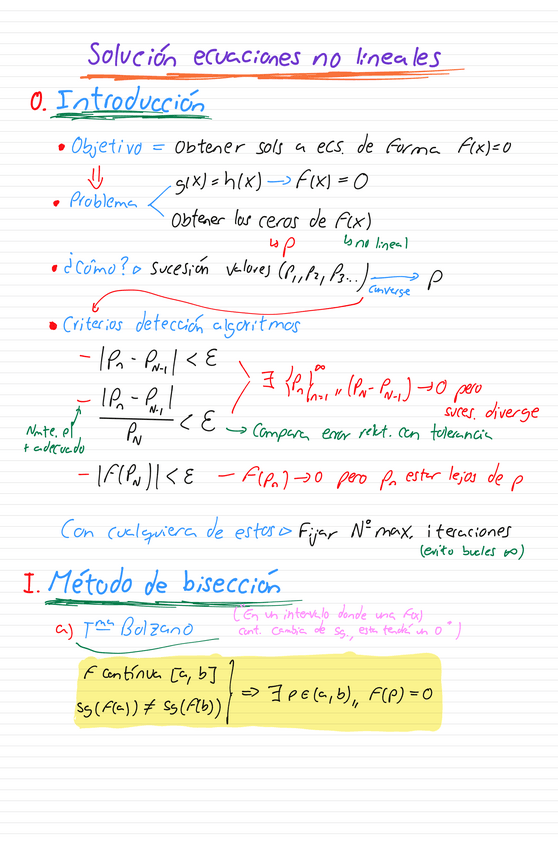 Solución ecuaciones no lineales
0. Introducción
• Objetivo = Obtener sols a ecs. de forma F(x)=0
⇓
• Problema < g(x) = h(x) → F(x) = 0
Obtener los ceros de F(x)
↳ p ↳ no lineal
• ¿Cómo? ▷ Sucesión valores (P₁, P₂, P₃...) → p
converge
• Criterios detección algoritmos
- |Pₙ - P_N-1| < ε
- |Pₙ - P_N-1| / P_N < ε
∃ {Pₙ}^∞ₙ₌₁ ,, (P_N - P_N-1) → 0 pero
suces. diverge
Nmte. el
+ adecuado
→ Compara error relat. con tolerancia
- |F(P_N)| < ε - F(Pₙ) → 0 pero pₙ estar lejos de p
Con cualquiera de estos ▷ Fijar Nº max. iteraciones
(evito bucles ∞)
I. Método de bisección
a) Tᵐᵃ Bolzano
(En un intervalo donde una F(x)
cont. cambia de sg., esta tendrá un 0*)
F contínua [a, b]
sg(F(a)) ≠ sg(F(b)) } ⇒ ∃ p ∈ (a, b),, F(p) = 0